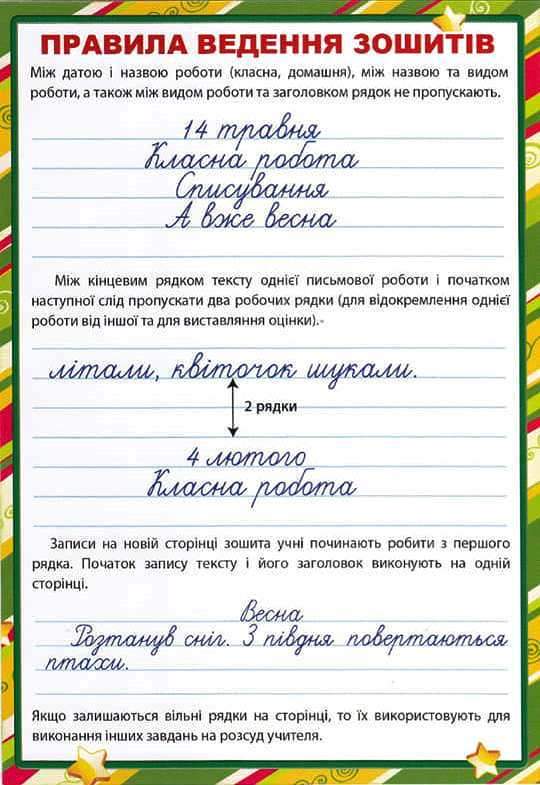 ПРАВИЛА ВЕДЕННЯ ЗОШИТІВ
Між датою і назвою роботи (класна, домашня), між назвою та видом
роботи, а також між видом роботи та заголовком рядок не пропускають.
14 травня
Класна робота
Списування
А вже весна
Між кінцевим рядком тексту однієї письмової роботи і початком
наступної слід пропускати два робочих рядки (для відокремлення однієї
роботи від іншої та для виставляння оцінки).
літали, квіточок шукали.
2 рядки
4 лютого
Класна робота
Записи на новій сторінці зошита учні починають робити з першого
рядка. Початок запису тексту і його заголовок виконують на одній
сторінці.
Весна
Розтанув сніг. З півдня повертаються
птахи.
Якщо залишаються вільні рядки на сторінці, то їх використовують для
виконання інших завдань на розсуд учителя.